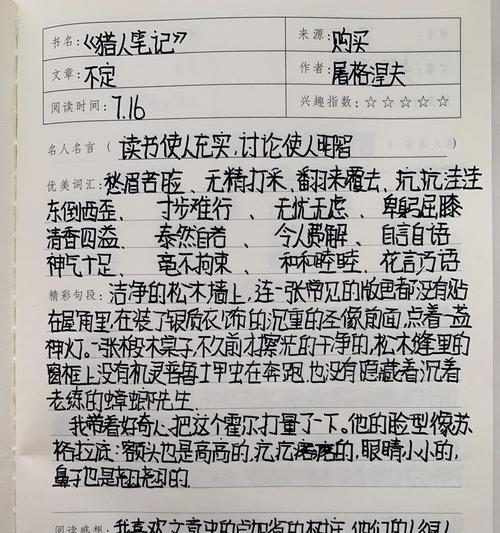 书名:《猎人笔记》 来源: 购买
文章: 不定 作者: 屠格涅夫
阅读时间: 7.16 兴趣指数: ☆☆☆☆☆
名人名言 ( 读书使人充实,讨论使人明智 )
优美词汇: 愁眉苦脸、无精打采、翻来覆去、坑坑洼洼
东倒西歪、寸步难行、无忧无虑、卑躬屈膝
清香四溢、泰然自若、令人费解、自言自语
神气十足、毫不拘束、和和睦睦、花言巧语
精彩句段: 洁净的松木墙上,连一张常见的版画都没有贴
在屋角里,在装了银质衣饰的沉重的圣像前面,点着一盏
神灯。一张椴木桌子,不久前才擦洗的干净的,松木缝里的
窗框上没有机灵普鲁士甲虫在奔跑.也没有隐藏着沉着
老练的蟑螂先生.
我带着好奇心把这个霍尔打量了一下。他的脸型像苏
格拉底:额头也是高高的,疙疙瘩瘩的,眼睛小小的,
鼻子也是翘翘的.
阅读感想: 我喜欢文章中的